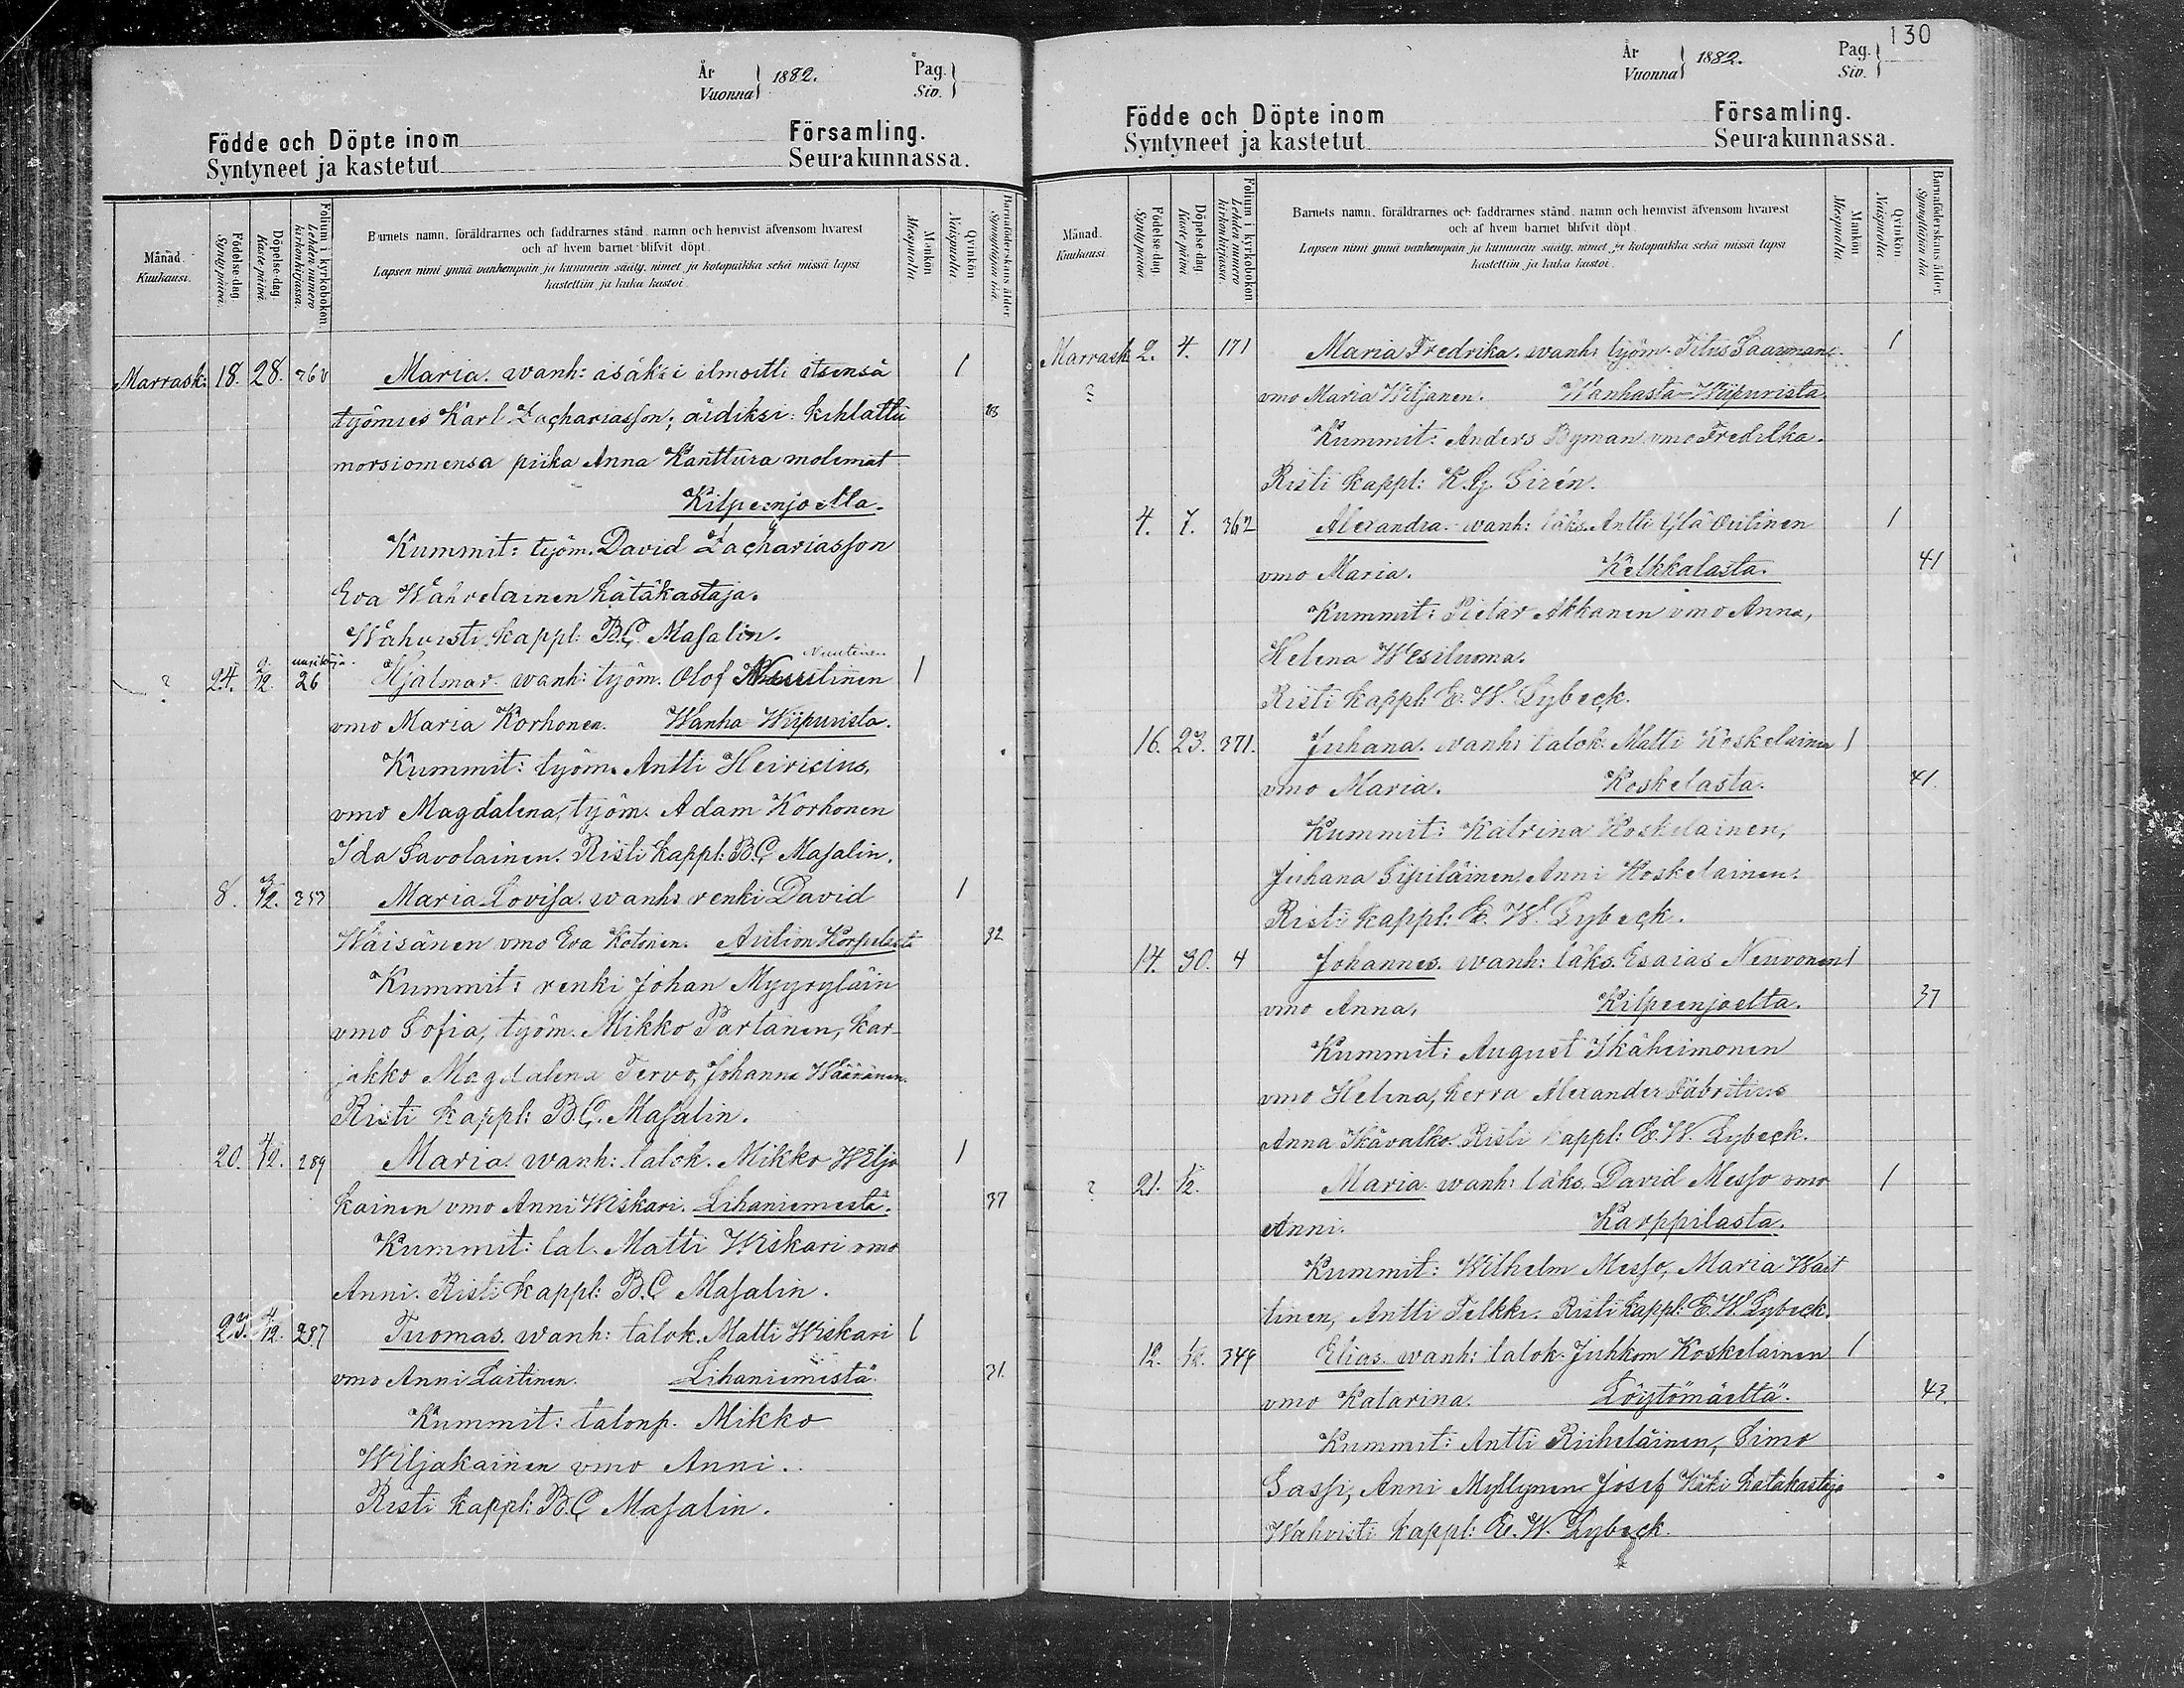 År Vuonna 1882. Pag. Siv.
Födde och Döpte inom Församling.
Syntyneet ja kastetut Seurakunnassa.
Månad. Kuukausi.
Födelse-dag. Synty-päivä.
Döpelse-dag. Kaste-päivä.
Folium i kyrkobokon Lehden numero kirkonkirjassa.
Barnets namn, föräldrarnes och faddrarnes stånd, namn och hemvist äfvensom hvarest
och af hvem barnet blifvit döpt.
Lapsen nimi ynnä vanhempain ja kummein sääty, nimet ja kotopaikka sekä missä lapsi
kastettiin ja kuka kastoi.
Mankön Miespuolia.
Qvinkön Naispuolia.
Barnaföderskans ålder. Synnyttäjän ikä.
Marrask. 18. 28. 360 Maria. wanh: isäksi ilmoitti itsensä 1
työmies Karl Zachariasson; äidiksi: kihlattu 23
morsiomensa piika Anna Kanttura molemat
Kilpeenjoelta.
Kummit: työm. David Zachariasson
Eva Wahvelainen hätäkastaja.
Wahvisti kappl: B.C. Masalin.
Nuutinen
? 24. 2/12. 26 Hjalmar. wanh: työm. Olof Nuutinen 1
vmo Maria Korhonen. Wanha Wiipurista.
Kummit: työm. Antti Heiricius,
vmo Magdalena, työm. Adam Korhonen
Ida Savolainen. Risti kappl: B.C. Masalin.
8. 3/12. 353 Maria Lovisa. wanh: renki David 1
Wäisänen vmo Eva Kotonen. Aution Korpelasta 32
Kummit: renki Johan Myyryläin
vmo Sofia, työm. Mikko Partanen, kar-
jakko Magdalena Tervo, Johanna Wäänänen.
Risti kappl: B.C. Masalin.
20. 4/12. 289 Maria. wanh: talok. Mikko Wilja 1
kainen vmo Anni Wiskari. Lihaniemestä. 37
Kummit: tal. Matti Wiskari vmo
Anni. Risti kappl: B.C. Masalin.
23. 4/12. 287 Tuomas. wanh: talok. Matti Wiskari 1
vmo Anni Laitinen. Lihaniemestä. 31.
Kummit: talonp. Mikko
Wiljakainen vmo Anni.
Risti kappl: B.C. Masalin.
130
År Vuonna 1882. Pag. Siv.
Födde och Döpte inom Församling.
Syntyneet ja kastetut Seurakunnassa.
Månad. Kuukausi.
Födelse-dag. Synty-päivä.
Döpelse-dag. Kaste-päivä.
Folium i kyrkobokon Lehden numero kirkonkirjassa.
Barnets namn, föräldrarnes och faddrarnes stånd, namn och hemvist äfvensom hvarest
och af hvem barnet blifvit döpt.
Lapsen nimi ynnä vanhempain ja kummein sääty, nimet ja kotopaikka sekä missä lapsi
kastettiin ja kuka kastoi.
Mankön Miespuolia.
Qvinkön Naispuolia.
Barnaföderskans ålder. Synnyttäjän ikä.
Marrask. 2. 4. 171 Maria Fredrika. wanh: työm. Titus Saarman 1
? vmo Maria Wiljanen. Wanhasta-Wiipurista.
Kummit: Anders Byman vmo Fredrika.
Risti kappl: K.G. Sirén.
4. 7. 362 Alexandra. wanh: läks. Antti Ylä Outinen 1
vmo Maria. Kelkkalasta. 41
Kummit: Pietar Akkanen vmo Anna,
Helena Wesiluoma.
Risti kappl: E.W. Lybeck.
16. 23. 371. Juhana. wanh: talok. Matti Koskelainen 1
vmo Maria. Koskelasta. 41.
Kummit: Katrina Koskelainen,
Juhana Sipiläinen, Anni Koskelainen.
Risti kappl: E. W. Lybeck.
14. 30. 4 Johannes. wanh: läks. Esaias Neuvonen 1
vmo Anna, Kilpeenjoelta. 37
Kummit: August Ikäheimonen
vmo Helena, herra Alexander Fabritius
Anna Ikävalko. Risti kappl: E.W. Lybeck.
? 21. 1/12. Maria. wanh: läks. David Messo vmo 1
Anni. Karppilasta.
Kummit: Wilhelm Messo, Maria Wait
tinen, Antti Telkki. Risti kappl: E.W. Lybeck.
12. 349 Elias. wanh: talok. Juhkom Koskelainen 1
vmo Katarina. Löytömäeltä. 43.
Kummit: Antti Riiheläinen, Simo
Sassi, Anni Myllynen Josef Käki hätäkastaja
Wahvisti kappl: E.W. Lybeck.